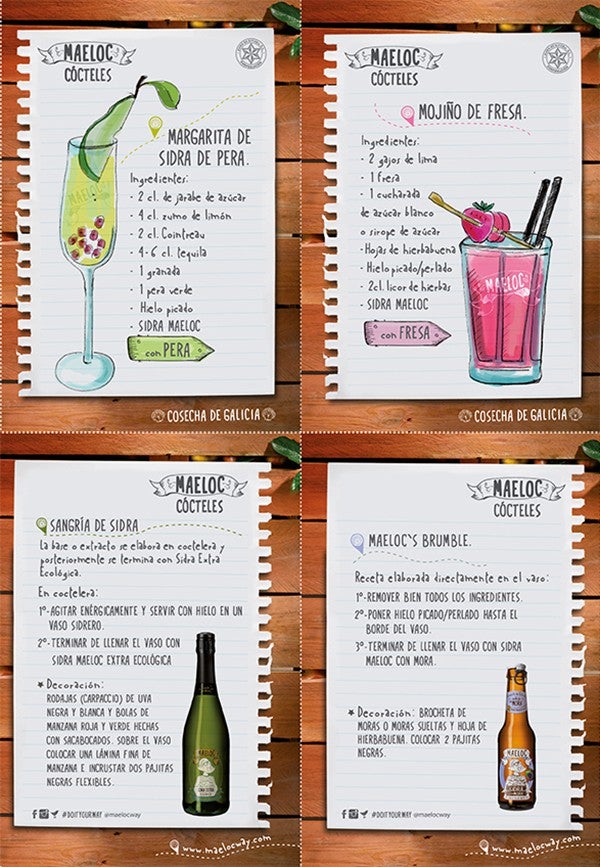 MAELOC
CÓCTELES
MARGARITA DE
SIDRA DE PERA.
Ingredientes:
- 2 cl. de jarabe de azúcar
- 4 cl. zumo de limón
- 2 cl. Cointreau
- 4-6 cl. tequila
- 1 granada
- 1 pera verde
- Hielo picado
- SIDRA MAELOC
con PERA
COSECHA DE GALICIA
MAELOC
CÓCTELES
MOJIÑO DE FRESA.
Ingredientes:
- 2 gajos de lima
- 1 fresa
- 1 cucharada
de azúcar blanco
o sirope de azúcar
- Hojas de hierbabuena
- Hielo picado/perlado
- 2cl. licor de hierbas
- SIDRA MAELOC
con FRESA
MAELOC
COSECHA DE GALICIA
MAELOC
CÓCTELES
SANGRÍA DE SIDRA
La base o extracto se elabora en coctelera y
posteriormente se termina con Sidra Extra
Ecológica.
En coctelera:
1º-AGITAR ENÉRGICAMENTE Y SERVIR CON HIELO EN UN
VASO SIDRERO.
2º-TERMINAR DE LLENAR EL VASO CON
SIDRA MAELOC EXTRA ECOLÓGICA
* Decoración:
RODAJAS (CARPACCIO) DE UVA
NEGRA Y BLANCA Y BOLAS DE
MANZANA ROJA Y VERDE HECHAS
CON SACABOCADOS. SOBRE EL VASO
COLOCAR UNA LÁMINA FINA DE
MANZANA E INCRUSTAR DOS PAJITAS
NEGRAS FLEXIBLES.
MAELOC
#DOITYOURWAY @maelocway
www.maelocway.com
MAELOC
CÓCTELES
MAELOC`S BRUMBLE.
Receta elaborada directamente en el vaso:
1º-REMOVER BIEN TODOS LOS INGREDIENTES.
2º-PONER HIELO PICADO/PERLADO HASTA EL
BORDE DEL VASO.
3º-TERMINAR DE LLENAR EL VASO CON SIDRA
MAELOC CON MORA.
* Decoración: BROCHETA DE
MORAS O MORAS SUELTAS Y HOJA DE
HIERBABUENA. COLOCAR 2 PAJITAS
NEGRAS.
MAELOC
#DOITYOURWAY @maelocway
www.maelocway.com